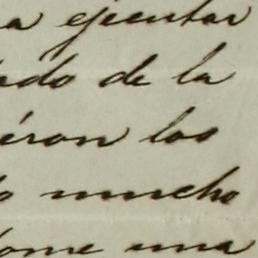 a ejecutar
ado de la
éron los
o mucho
ome una